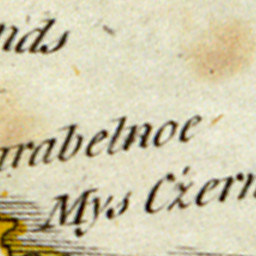 nds
arabelnoe
Mys Cżern